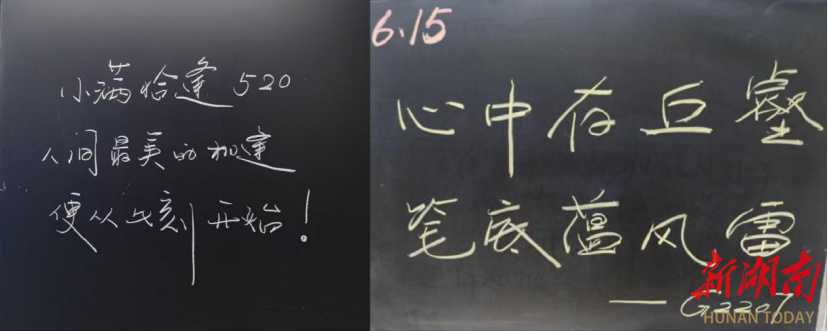 小满恰逢520
人间最美的相逢
便从此刻开始！
6.15
心中存丘壑
笔底蕴风雷
——G2207
新湖南
HUNAN TODAY